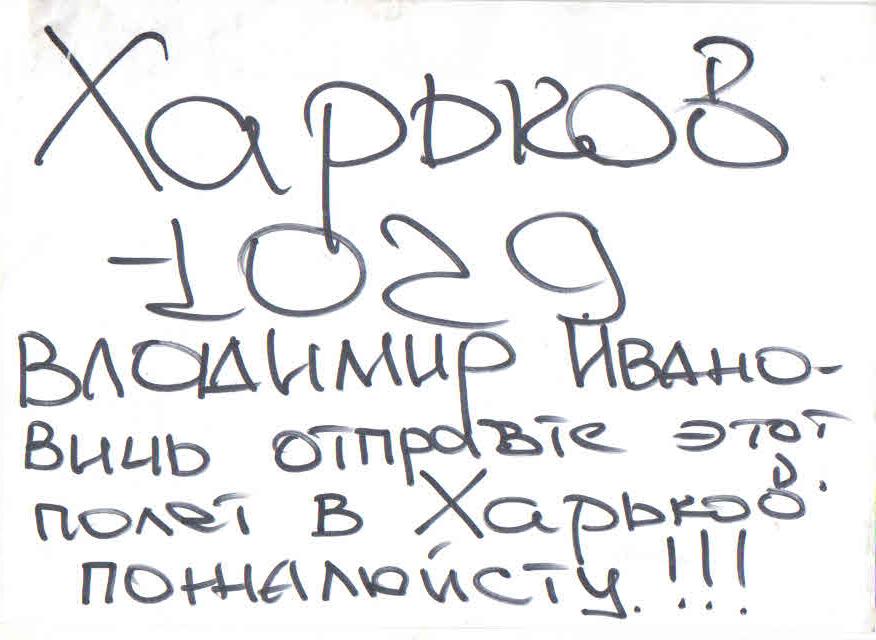 Харьков
-1029
Владимир Ивано-
вичь отправте этот
полет в Харьков.
пожалюйсту.!!!